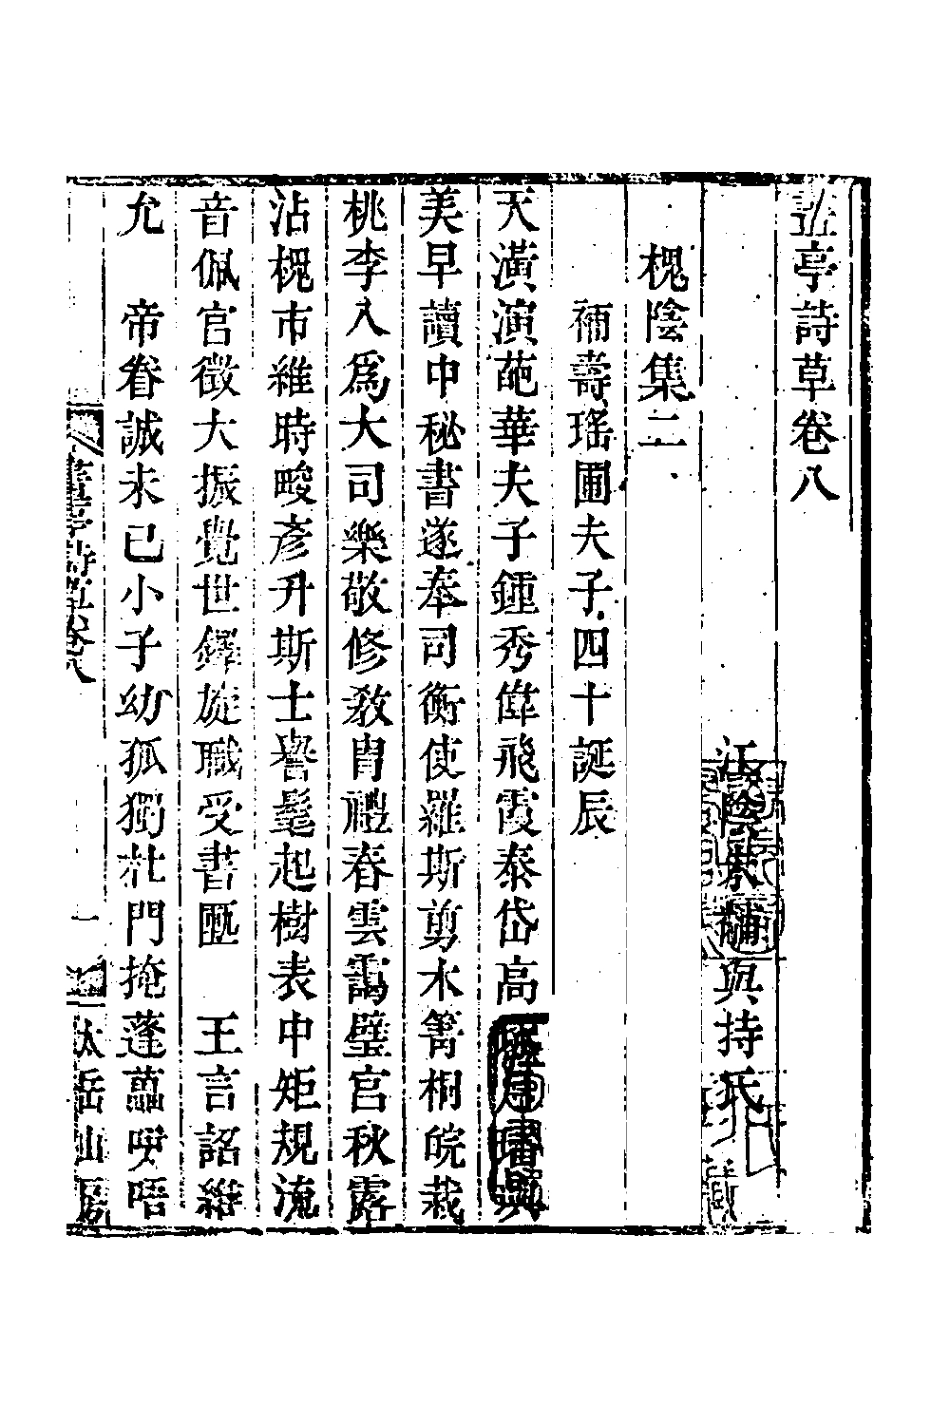 亭詩草卷八
江陰 與持氏
槐陰集二
補壽瑤圃夫子四十誕辰
天潢演葩華夫子鍾秀偉飛霞泰岱高
美早讀中秘書遂奉司衡使羅斯剪木箐桐皖栽
桃李入爲大司樂敬修敎冑禮春雲靄璧宮秋露
沾槐市維時畯彥升斯士譽髦起樹表中矩規流
音佩宫徵大振覺世鐸旋職受書匭 王言詔維
允 帝眷誠未已小子幼孤獨杜門掩蓬藟吚唔
亭詩草卷八 一